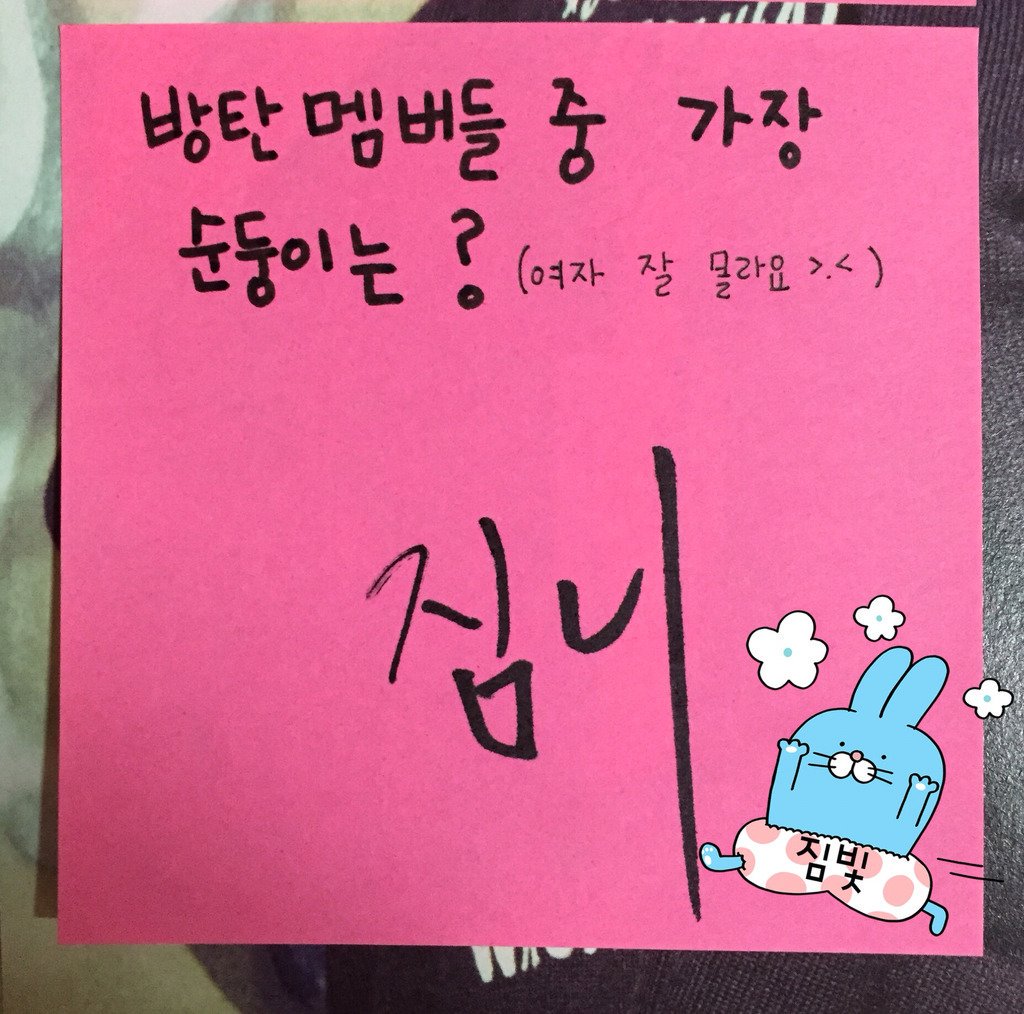 방탄 멤버들 중 가장
순둥이는? (여자 잘 몰라요 >.<)
짐니
짐빛